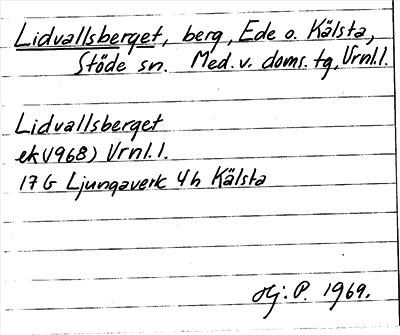 Lidvallsberget, berg, Ede o. Kälsta,
Stöde sn. Med. v. doms. tg, Vrnl.l.
Lidvallsberget
ek(1968) Vrnl.l.
17 G Ljungaverk 4h Kälsta
Hj. P. 1969.